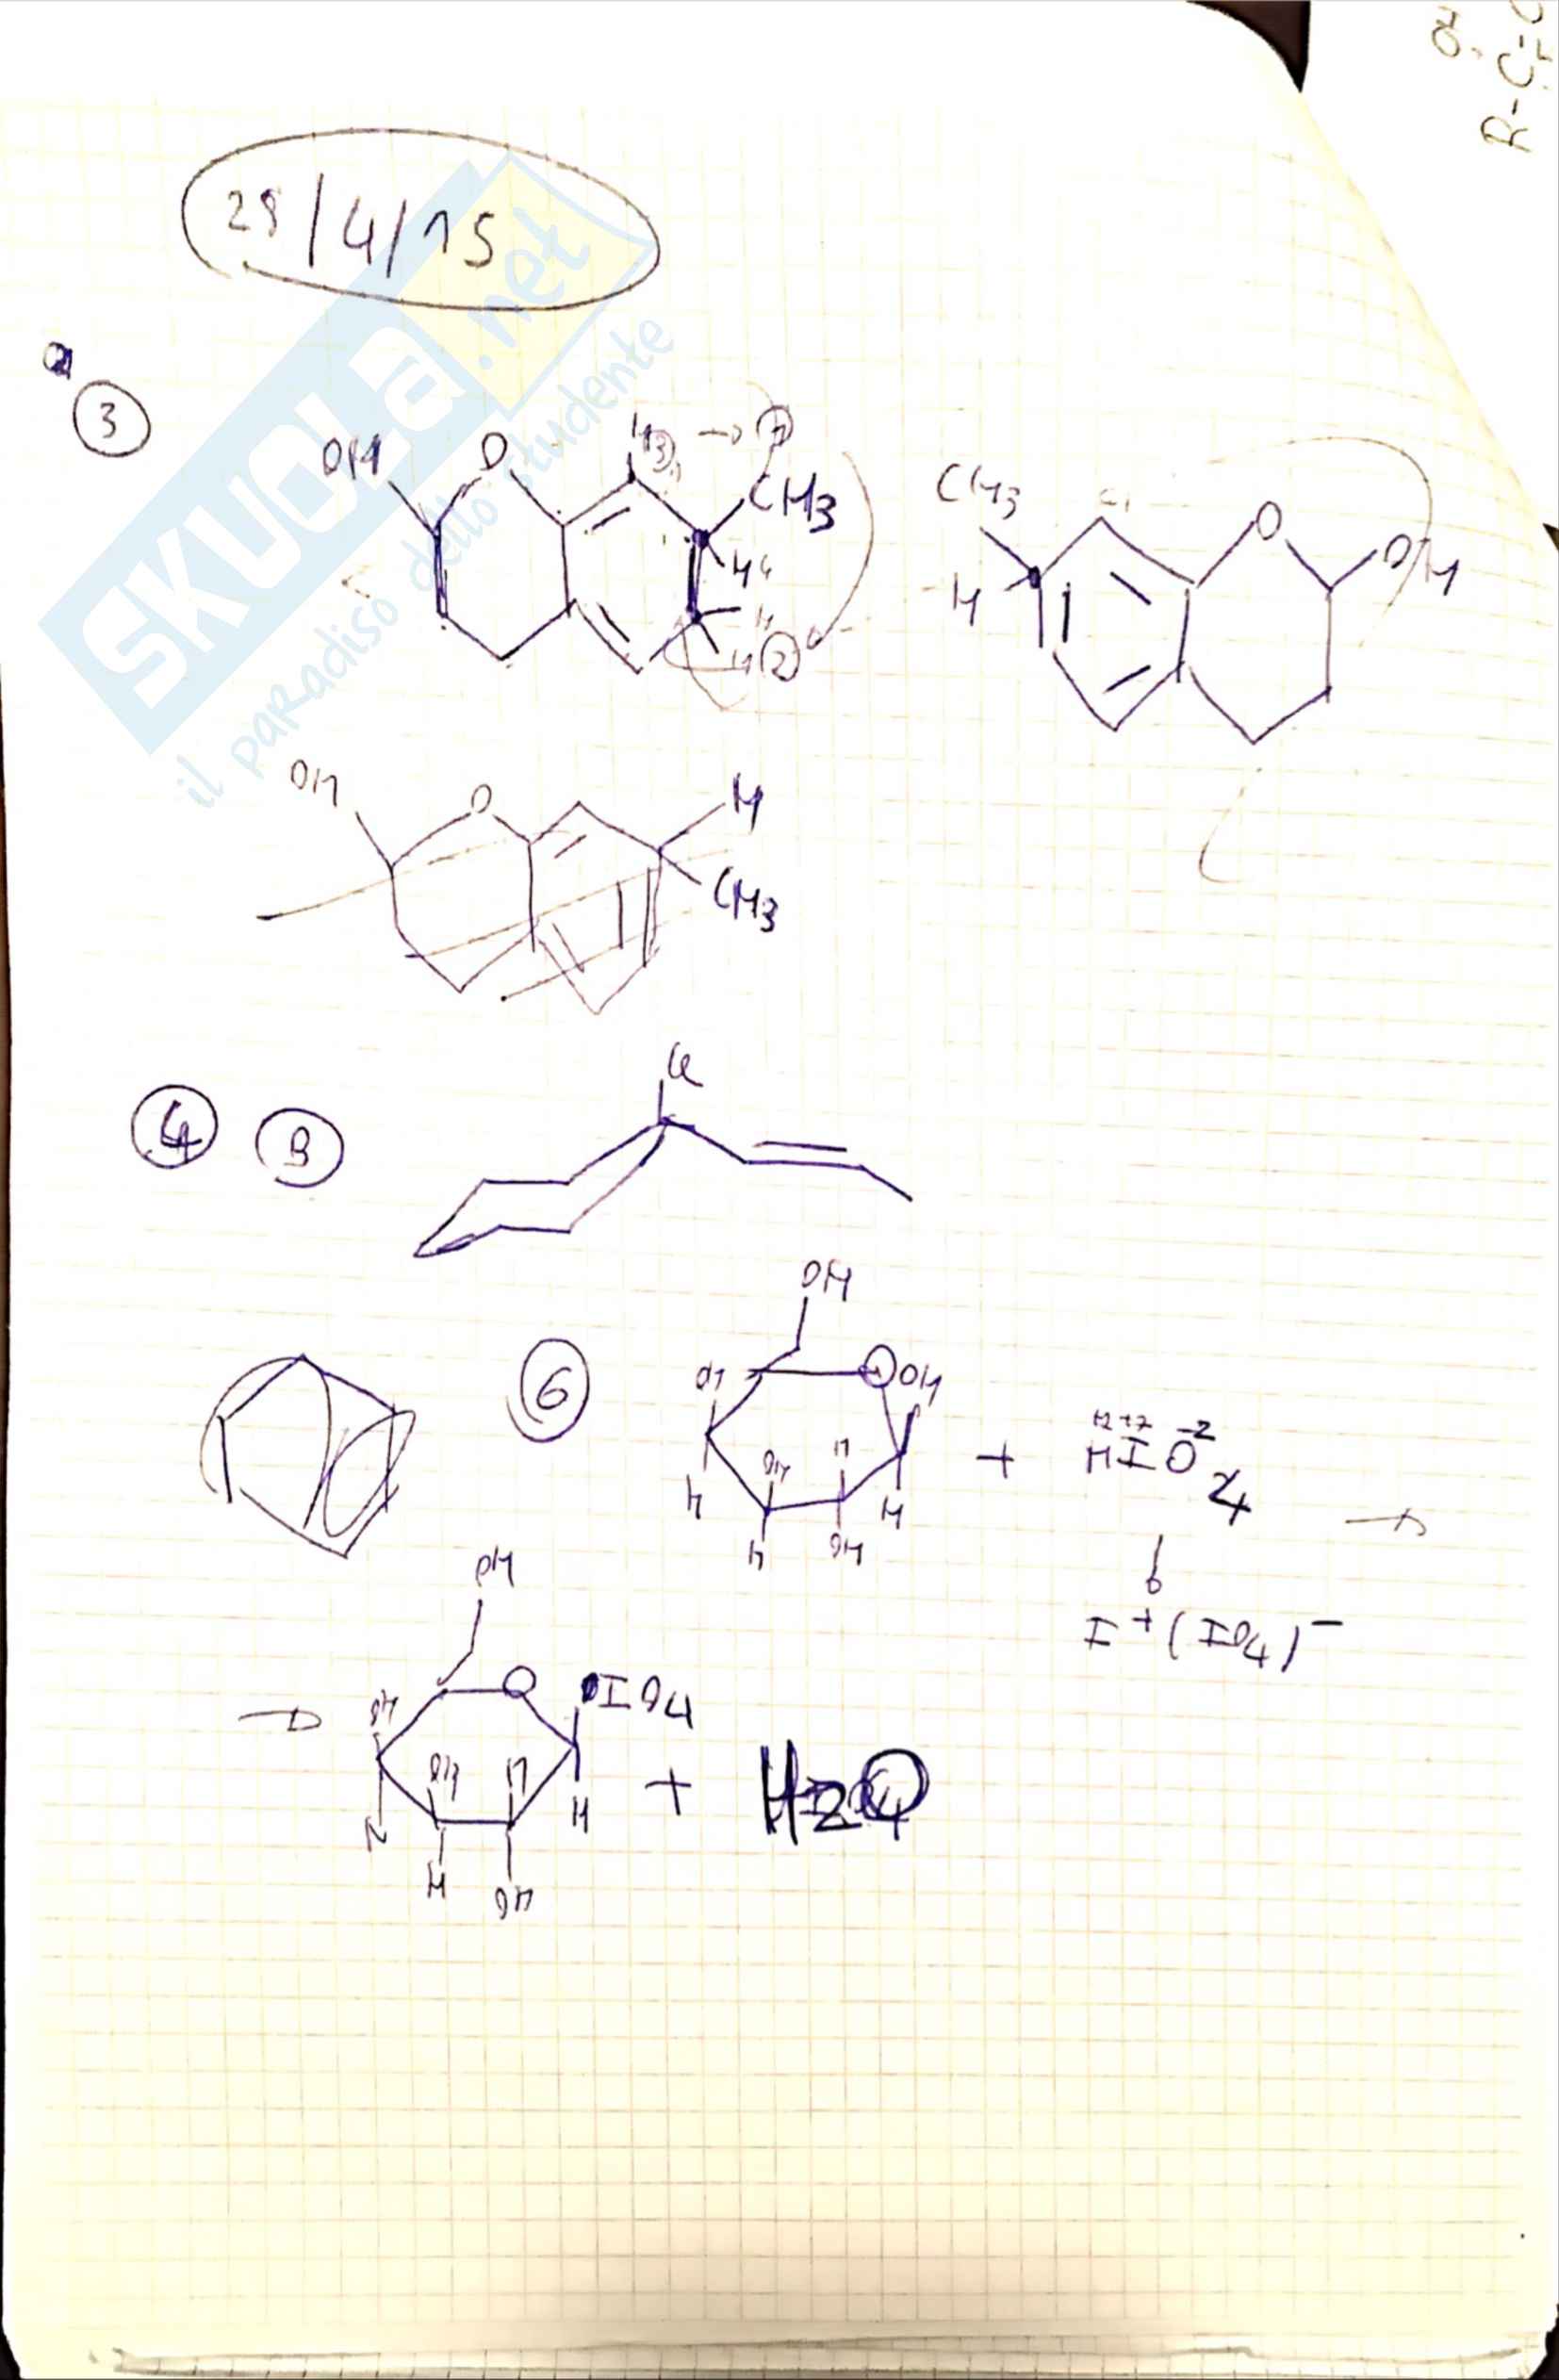 R-C-C
OH
29/4/15
SKUOLA.net
il paradiso dello studente
3
OH O H3 → 1
CH3
H4
H
H 2
CH3 O OH
H
OH O H
CH3
4 B Cl
6
OH
OH O OH
H OH H H
H OH
+ HIO4
+7 -2
→
I+(IO4)-
OH
→ OH O OIO4
OH H H
H OH
+ H2O